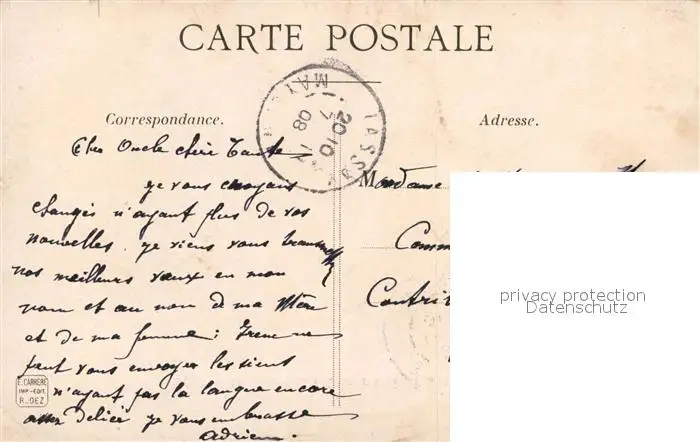 CARTE POSTALE
Correspondance.
Adresse.
MAY
20 10
7 - 7
08
LASSA
Cher Oncle chère Tante
je vous croyais
changés n'ayant plus de vos
nouvelles. je viens vous transmettre
nos meilleurs vœux en mon
nom et au nom de ma Mère
et de ma femme; Irène ne
peut vous envoyer les siens
n'ayant pas la langue encore
assez déliée je vous embrasse
Adrien.
Madame
Comm
Contri
E. CARRÈRE
IMP.-EDIT.
RODEZ
privacy protection
Datenschutz